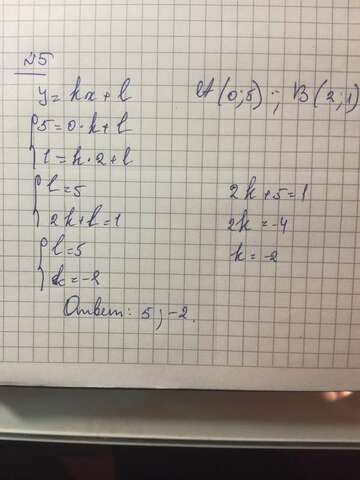 №5
y = kx + l A(0;5); B(2;1)
5 = 0·k + l
1 = k·2 + l
l = 5 2k + 5 = 1
2k + l = 1 2k = -4
l = 5 k = -2
k = -2
Ответ: 5; -2.